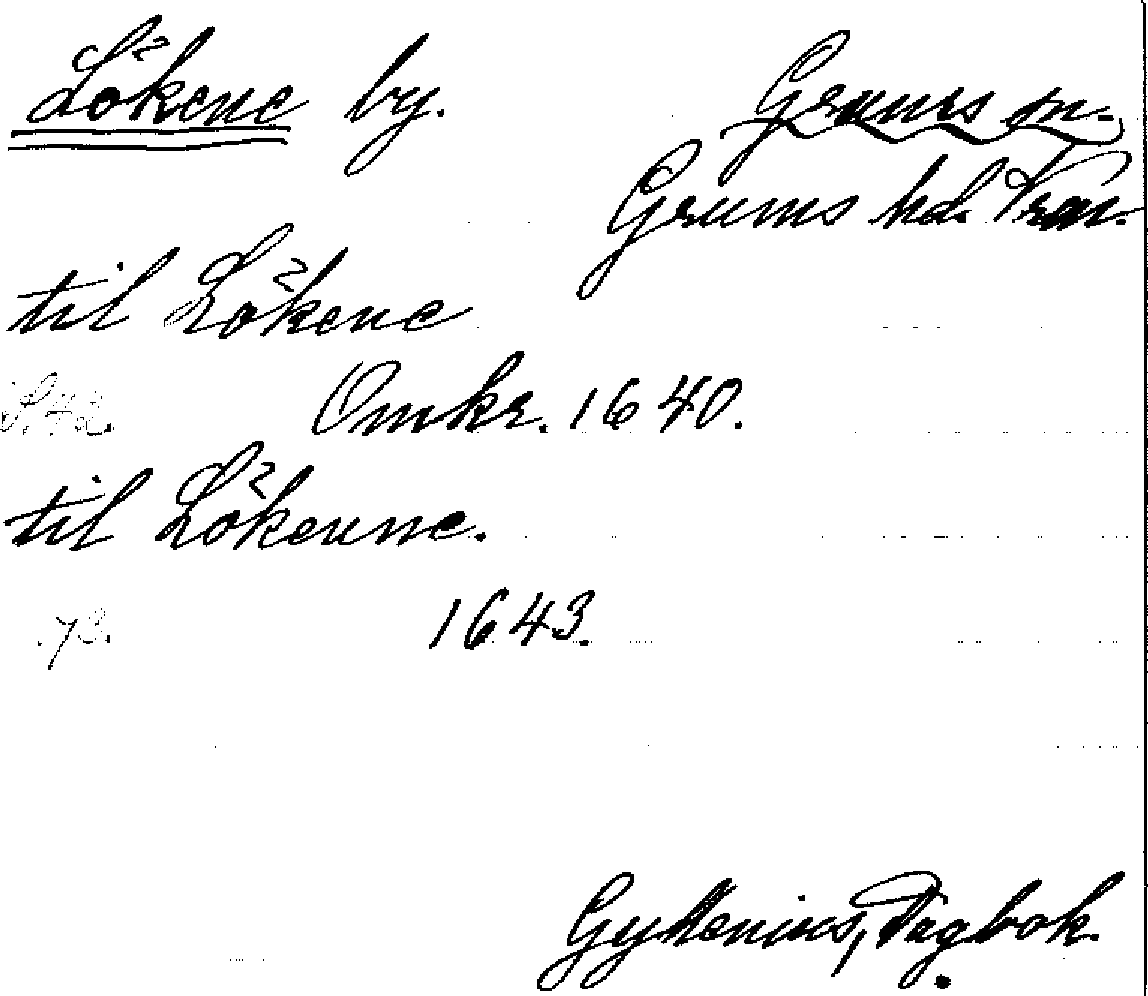 Lökene by. Grums sn.
Grums hd. Vrml.
til Lökene
S. 42. Omkr. 1640.
til Lökenne.
73. 1643.
Gyttenius, Dagbok.